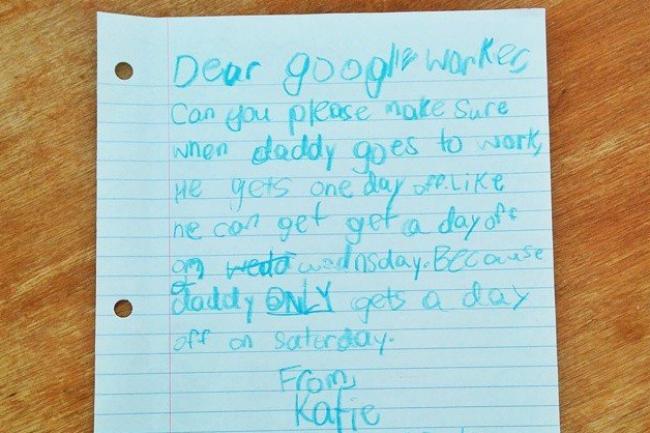 Dear google worker,
Can you please make sure
when daddy goes to work,
He gets one day off. Like
he can get get a day off
on wednsday. Because
daddy ONLY gets a day
off on saturday.
From,
Katie